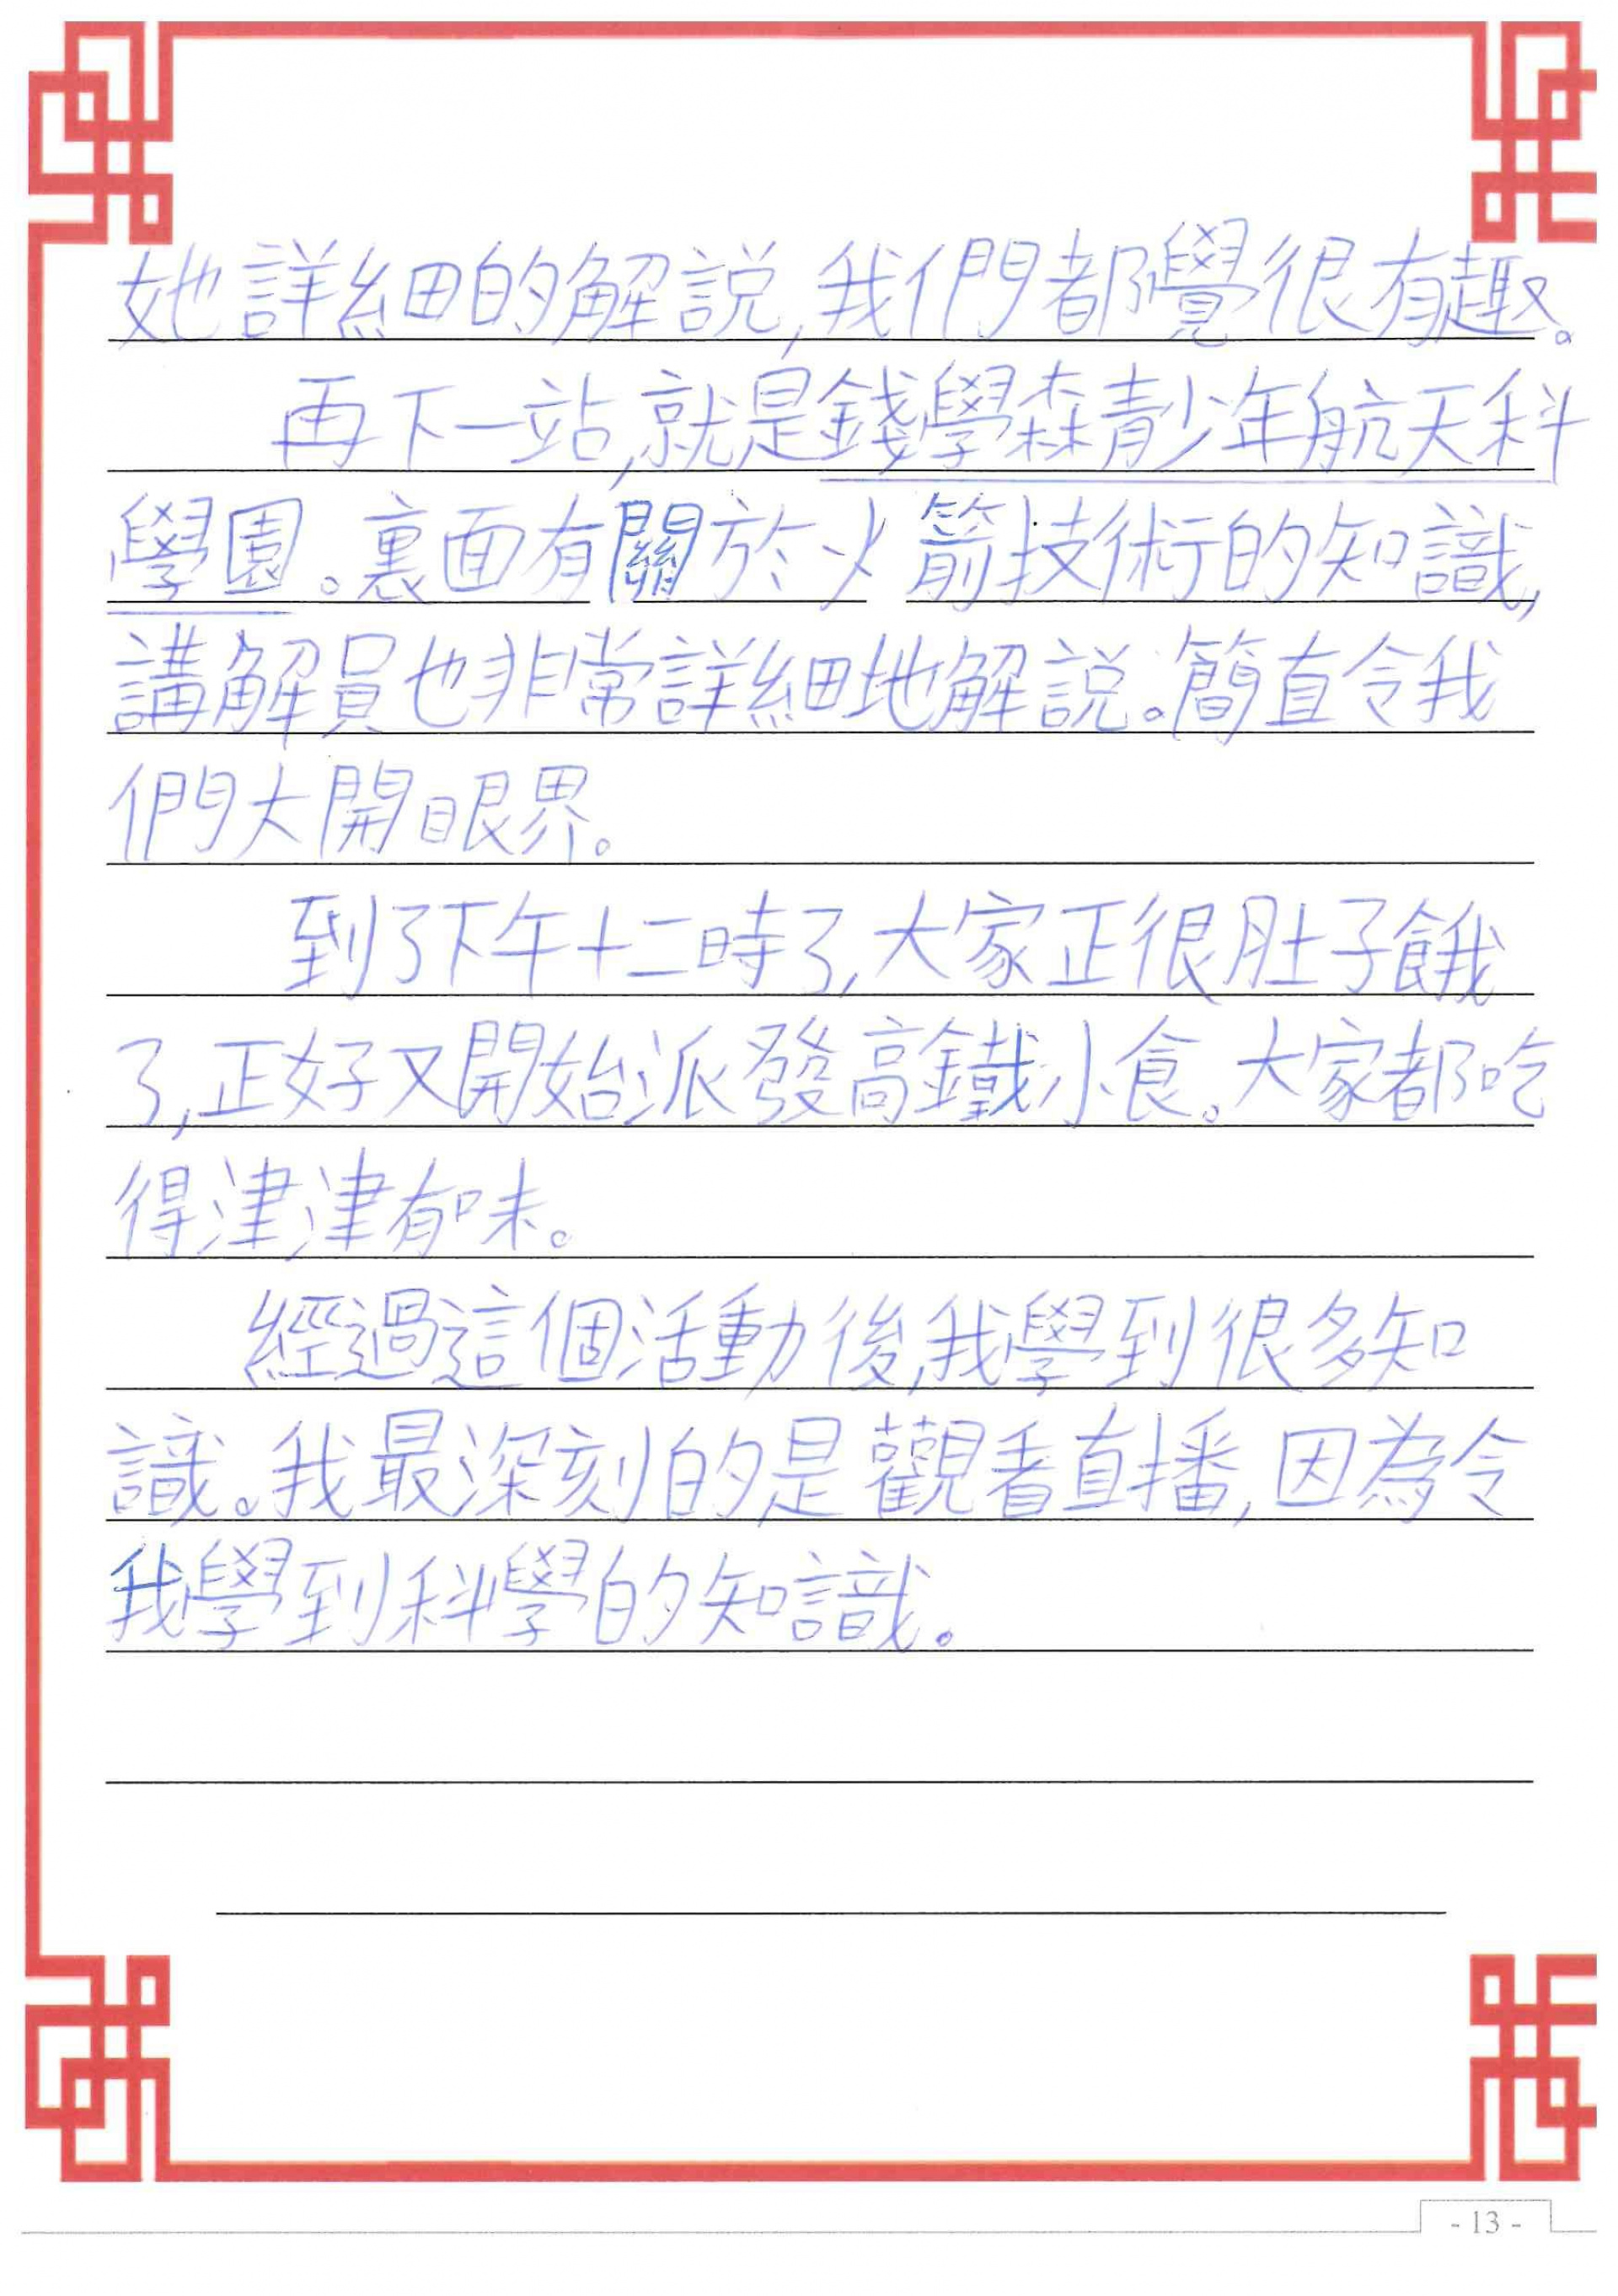 她詳細的解説,我們都覺很有趣。
再下一站,就是錢學森青少年航天科
學園。裏面有關於火箭技術的知識,
講解員也非常詳細地解説。簡直令我
們大開眼界。
到了下午十二時了,大家正很肚子餓
了,正好又開始派發高鐵小食。大家都吃
得津津有味。
經過這個活動後,我學到很多知
識。我最深刻的是觀看直播,因為令
我學到科學的知識。
- 13 -